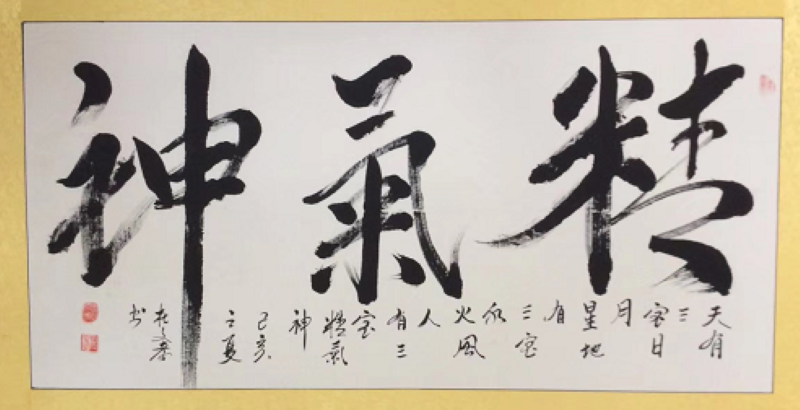 精氣神
天有
三
宝日
月
星地
有
三宝
水
火風
人
有三
宝
精氣
神
己亥
之夏
书